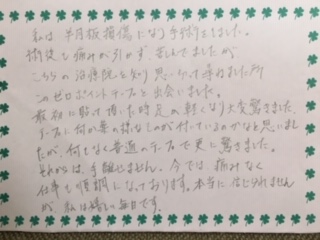 私は半月板損傷になり手術をしました。
術後も痛みが引かず、苦しんでましたが
こちらの治療院を知り思い切って尋ねました所
このゼロポイントテープと出会いました。
最初に貼って頂いた時足の軽くなり大変驚きました。
テープに何か薬の様なものが付いているのかなと思いまし
たが、何もなく普通のテープで更に驚きました。
それからは、手離せません。今では痛みなく
仕事も順調になっております。本当に信じられません
が私は嬉しい毎日です。